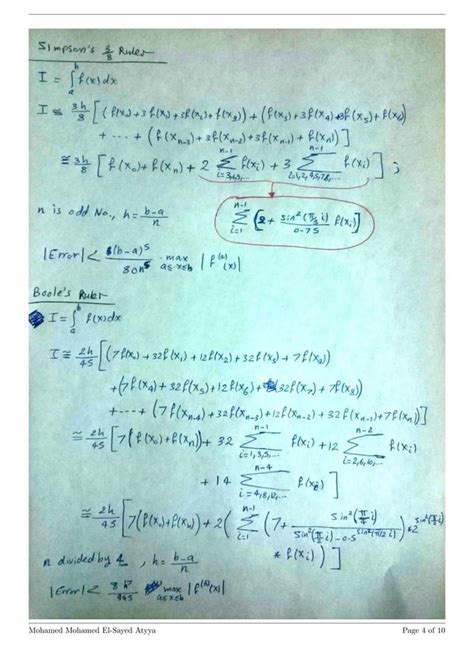 Simpson's 3/8 Ruler
I = ∫ₐᵇ f(x) dx
I ≅ 3h/8 [ (f(x₀) + 3f(x₁) + 3f(x₂) + f(x₃)) + (f(x₃) + 3f(x₄) + 3f(x₅) + f(x₆))
+ --- + (f(xₙ₋₃) + 3f(xₙ₋₂) + 3f(xₙ₋₁) + f(xₙ)) ]
≅ 3h/8 [ f(x₀) + f(xₙ) + 2 Σ_{i=3,6,9,...}^{n-1} f(xᵢ) + 3 Σ_{i=1,2,4,5,7,8,...}^{n-1} f(xᵢ) ] ;
n is odd No., h = b-a/n
Σ_{i=1}^{n-1} [ 2 + sin²(π/3 i)/0.75 f(xᵢ) ]
|Error| < (b-a)⁵/80n⁵ · max_{a≤x≤b} |f⁽⁴⁾(x)|
Boole's Ruler
I = ∫ₐᵇ f(x) dx
I ≅ 2h/45 [ (7f(x₀) + 32f(x₁) + 12f(x₂) + 32f(x₃) + 7f(x₄))
+ (7f(x₄) + 32f(x₅) + 12f(x₆) + 32f(x₇) + 7f(x₈))
+ --- + (7f(xₙ₋₄) + 32f(xₙ₋₃) + 12f(xₙ₋₂) + 32f(xₙ₋₁) + 7f(xₙ)) ]
≅ 2h/45 [ 7(f(x₀) + f(xₙ)) + 32 Σ_{i=1,3,5,...}^{n-1} f(xᵢ) + 12 Σ_{i=2,6,10,...}^{n-2} f(xᵢ)
+ 14 Σ_{i=4,8,12,...}^{n-4} f(xᵢ) ]
≅ 2h/45 [ 7(f(x₀) + f(xₙ)) + 2 ( Σ_{i=1}^{n-1} (7 +
* f(xᵢ) ) ]
n divided by 4, h = b-a/n
|Error| < 8h⁷/945 max_{a≤x≤b} |f⁽⁶⁾(x)|
Mohamed Mohamed El-Sayed Atyya Page 4 of 10